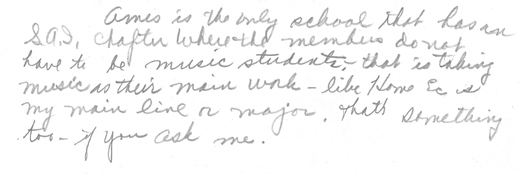 Ames is the only school that has an
S.A.I. chapter where the members do not
have to be music students, that is taking
music as their main work - like Home Ec is
my main line or major. thats something
too - if you ask me.